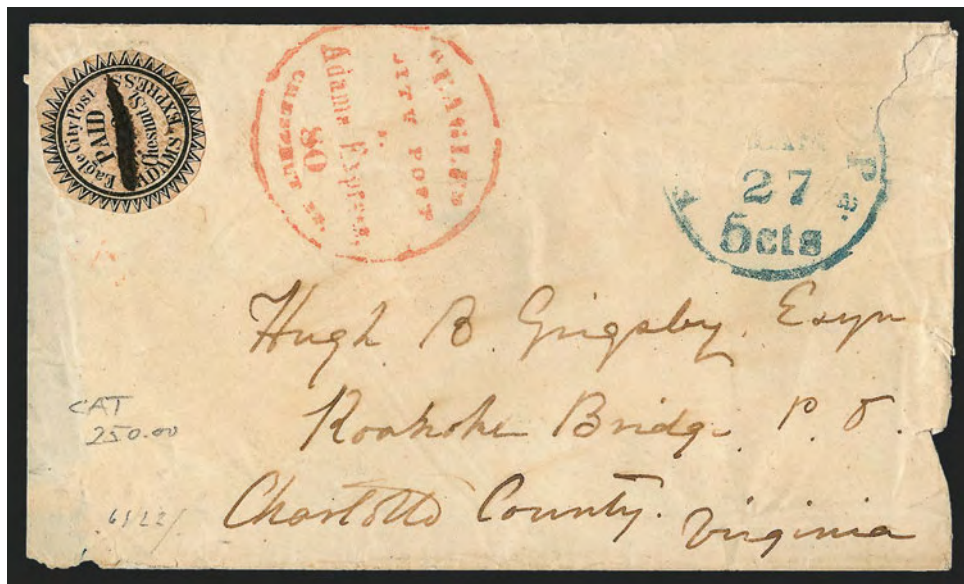 Eagle City Post
PAID
Chesnut St.
ADAMS' EXPRESS
EAGLE
CITY POST
Adams Express
80
CHESTNUT ST
27
5cts
Pa.
Hugh B Grigsby, Esqr
Roanoke Bridge P. O.
Charlotte County.
Virginia
CAT
250.00